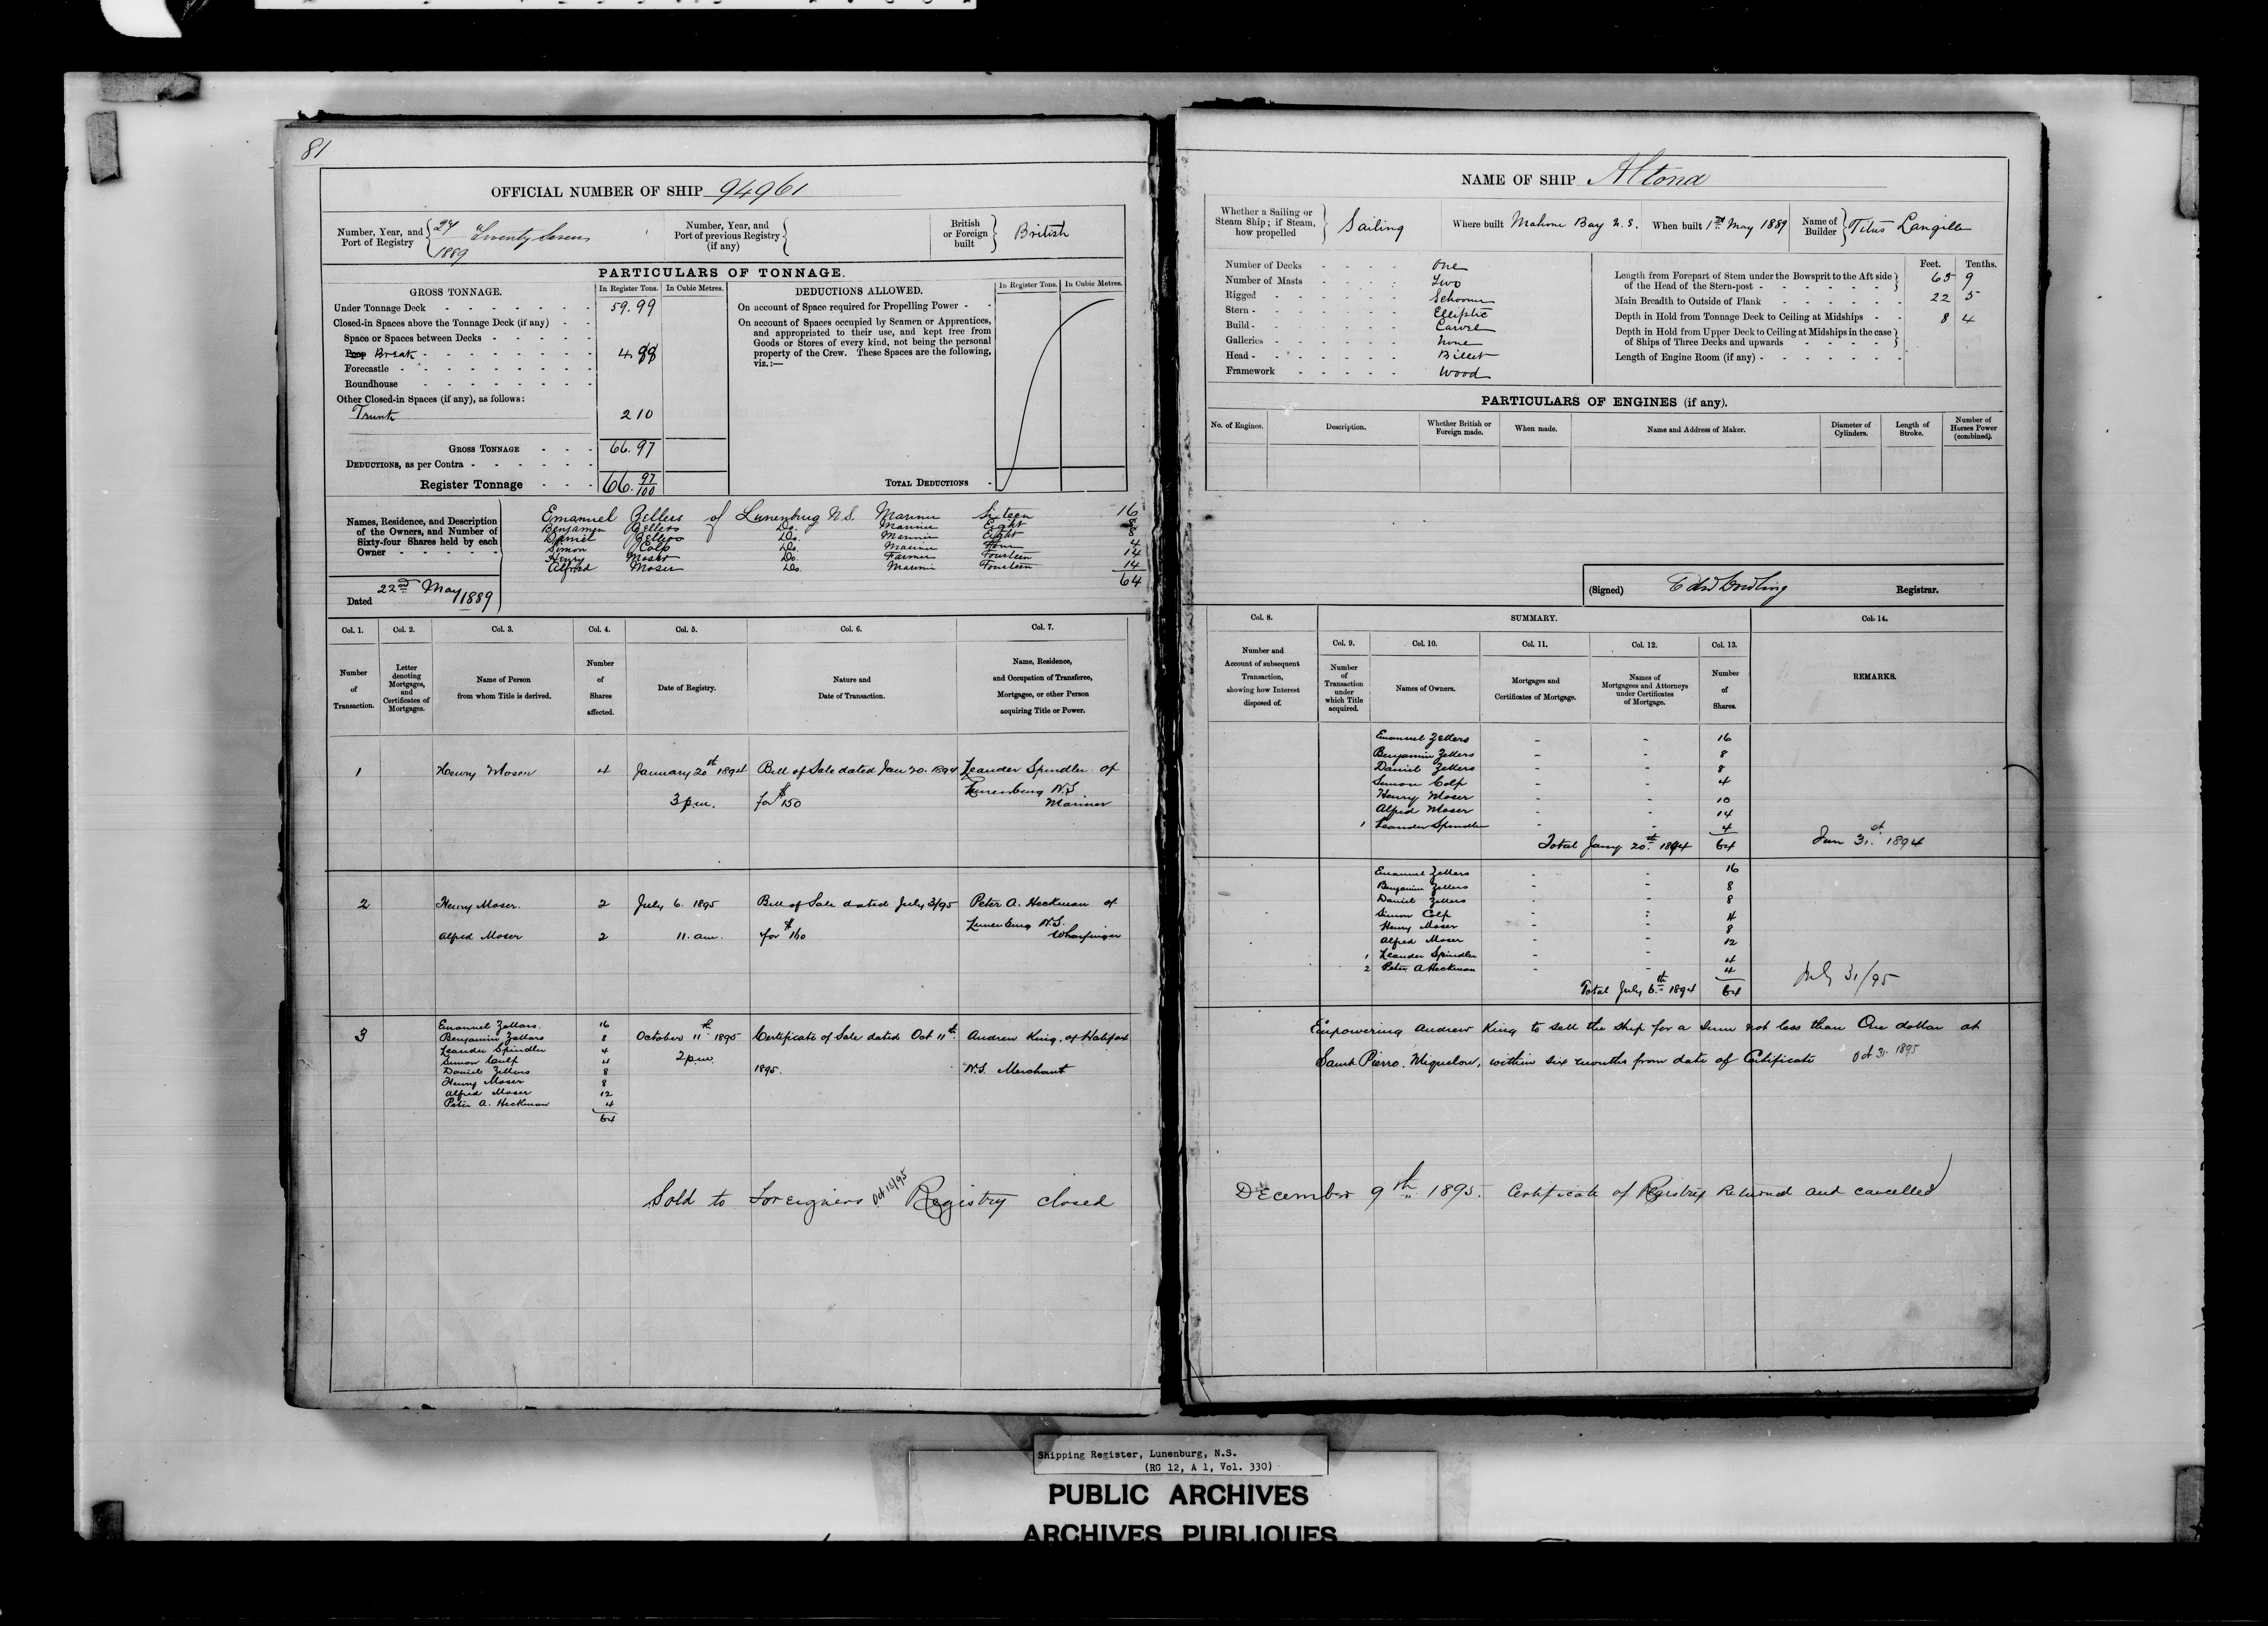 81
OFFICIAL NUMBER OF SHIP 94961
Number, Year, and Port of Registry 27 Twenty Seven 1889
Number, Year, and Port of previous Registry (if any)
British or Foreign built British
PARTICULARS OF TONNAGE.
GROSS TONNAGE. In Register Tons. In Cubic Metres.
Under Tonnage Deck 59.99
Closed-in Spaces above the Tonnage Deck (if any)
Space or Spaces between Decks
Poop Break 4.88
Forecastle
Roundhouse
Other Closed-in Spaces (if any), as follows:
Trunk 2 10
GROSS TONNAGE 66.97
DEDUCTIONS, as per Contra
Register Tonnage 66. 97/100
DEDUCTIONS ALLOWED. In Register Tons. In Cubic Metres.
On account of Space required for Propelling Power
On account of Spaces occupied by Seamen or Apprentices,
and appropriated to their use, and kept free from
Goods or Stores of every kind, not being the personal
property of the Crew. These Spaces are the following,
viz.:—
TOTAL DEDUCTIONS
Names, Residence, and Description
of the Owners, and Number of
Sixty-four Shares held by each
Owner
Emanuel Zellers of Lunenburg N.S. Mariner Sixteen 16
Benjamin Zellers Do. Mariner Eight 8
Daniel Zellers Do. Mariner Eight 8
Simon Colp Do. Mariner Four 4
Henry Moser Do. Farmer Fourteen 14
Alfred Moser Do. Marine Fourteen 14
64
Dated 22nd May 1889
Col. 1. Col. 2. Col. 3. Col. 4. Col. 5. Col. 6. Col. 7.
Number of Transaction.
Letter denoting Mortgages, and Certificates of Mortgages.
Name of Person from whom Title is derived.
Number of Shares affected.
Date of Registry.
Nature and Date of Transaction.
Name, Residence, and Occupation of Transferee, Mortgagee, or other Person acquiring Title or Power.
1 Henry Moser 4 January 20th 1894 Bill of Sale dated Jan 20. 1894 Leander Spindler of
3 p.m. for $150 Lunenburg N.S
Mariner
2 Henry Moser. 2 July 6. 1895 Bill of Sale dated July 3/95 Peter A. Heckman of
Alfred Moser 2 11. am. for $160 Lunenburg N.S.
Wharfinger
3 Emanuel Zellars. 16 October 11th 1895 Certificate of Sale dated Oct 11th Andrew King, of Halifax
Benjamin Zellars 8
Leander Spindler 4 2 p.m.
Simon Culp 4 1895. N.S. Merchant
Daniel Zellers 8
Henry Moser 8
Alfred Moser 12
Peter A. Heckman 4
64
Sold to Foreigners Oct 15/95 Registry closed
NAME OF SHIP Altona
Whether a Sailing or Steam Ship; if Steam, how propelled Sailing
Where built Mahone Bay N.S.
When built 1st May 1889
Name of Builder Titus Langille
Number of Decks One
Number of Masts Two
Rigged Schooner
Stern Elliptic
Build Carvel
Galleries None
Head Billet
Framework Wood
Feet. Tenths.
Length from Forepart of Stem under the Bowsprit to the Aft side
of the Head of the Stern-post 65 9
Main Breadth to Outside of Plank 22 5
Depth in Hold from Tonnage Deck to Ceiling at Midships 8 4
Depth in Hold from Upper Deck to Ceiling at Midships in the case
of Ships of Three Decks and upwards
Length of Engine Room (if any)
PARTICULARS OF ENGINES (if any).
No. of Engines. Description. Whether British or Foreign made. When made. Name and Address of Maker. Diameter of Cylinders. Length of Stroke. Number of Horses Power (combined).
(Signed) Registrar.
Col. 8. SUMMARY. Col. 14.
Col. 9. Col. 10. Col. 11. Col. 12. Col. 13.
Number and Account of subsequent Transaction, showing how Interest disposed of.
Number of Transaction under which Title acquired.
Names of Owners.
Mortgages and Certificates of Mortgage.
Names of Mortgagees and Attorneys under Certificates of Mortgage.
Number of Shares.
REMARKS.
Emanuel Zellers - - 16
Benjamin Zellers - - 8
Daniel Zellers - - 8
Simon Colp - - 4
Henry Moser - - 10
Alfred Moser - - 14
1 Leander Spindler - - 4
Total Jany 20th 1894 64 Jan 31st 1894
Emanuel Zellers - - 16
Benjamin Zellers - - 8
Daniel Zellers - - 8
Simon Colp - - 4
Henry Moser - - 8
Alfred Moser - - 12
1 Leander Spindler 4
2 Peter A Heckman - - 4
Total July 6th 1894 64 July 31/95
Empowering Andrew King to sell the ship for a sum not less than One dollar at
Saint Pierro. Miquelon, within six months from date of Certificate Oct 31 1895
December 9th 1895. Certificate of Registry Returned and cancelled
Shipping Register, Lunenburg, N.S.
(RG 12, A 1, Vol. 330)
PUBLIC ARCHIVES
ARCHIVES PUBLIQUES